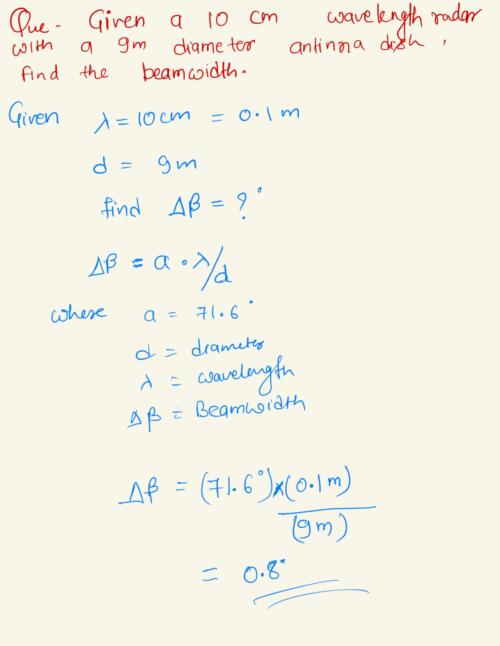 Que - Given a 10 cm wavelength radar
with a 9m diameter antinna dish,
find the beamwidth.
Given λ = 10cm = 0.1 m
d = 9m
find Δβ = ?°
Δβ = a • λ/d
where a = 71.6°
d = diameter
λ = wavelength
Δβ = Beamwidth
Δβ = (71.6°) x (0.1m)
(9m)
= 0.8°